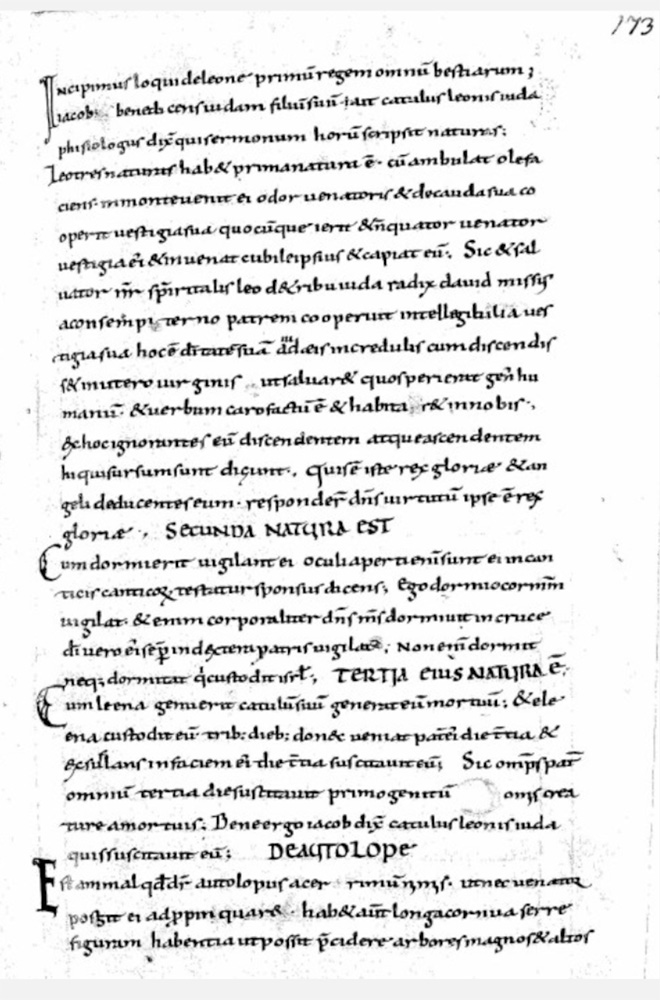 173
Incipimus loqui de leone primū regem omniū bestiarum;
iacob benedicens iudam filiū suū ait catulus leonis iuda
phisiologus dix̄ qui sermonum horū scripsit naturas;
Leo tres naturas hab& prima natura ē· cū ambulat olefa
ciens in monte uenit ei odor uenatoris & de cauda sua co
operit uestigia sua quocūque ierit & n̄ quator uenator
uestigia ei & inuenat cubile ipsius & capiat eū; Sic & sal
uator nr̄ sp̄iritalis leo de tribu iuda radix dauid missus
a con sempiterno patrem cooperuit intellegibilia ues
tigia sua hoc ē ditatē suā eis incredulis cum discendis
s& in utero uirginis ut saluar& quos perierat gen̄ hu
manū· & uerbum caro factū ē & habita r& in nobis·,
& hoc ignorantes eū discendentem atque ascendentem
hi qui sursum sunt dicunt·, quis ē iste rex gloriæ & an
geli deducentes eum· responder̄ dn̄s uirtutū ipse ē rex
gloriæ·, Secunda natura est
Cum dormierit uigilant ei oculi aperti eni sunt ei in can
ticis canticoꝝ testatur sponsus dicens; Ego dormio cor m̄m
uigilat· & enim corporaliter dn̄s m̄s dormiuit in cruce
di uero ei sēp in dextera patris uigilat; Non eni dormit
neq; dormitat q̇ custodit isrl̄; TERTIA EIUS NATURA Ē;
Cum leena genuerit catulū suū generat eū mortuū; & ele
ena custodit eū trib; dieb; donec ueniat pater ei die t̄tia &
exsufflans in faciem ei die t̄tia suscitauit eū; Sic omp̄s pat̄
omniū tertia die suscitauit primogenitū omīs crea
ture a mortuis; Bene ergo iacob dix̄ catulus leonis iuda
quis suscitauit eū; DE AUTOLOPE
Est animal qd̄ dr̄ autolopus acer rimū nimis· ut nec uenatoꝝ
possit ei adp̄pinquare· hab& aūt longa cornua serre
figuram habentia ut possit p̄cidere arbores magnos & altos